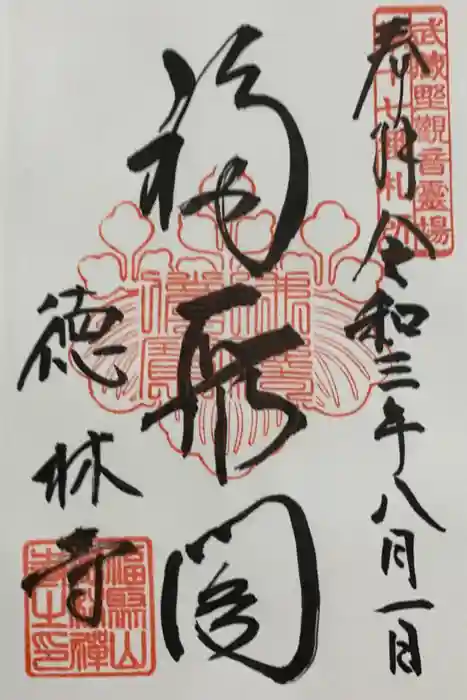 武蔵野觀音靈場
第十七番札所
奉拝 令和三年八月一日
福聚閣
徳林寺